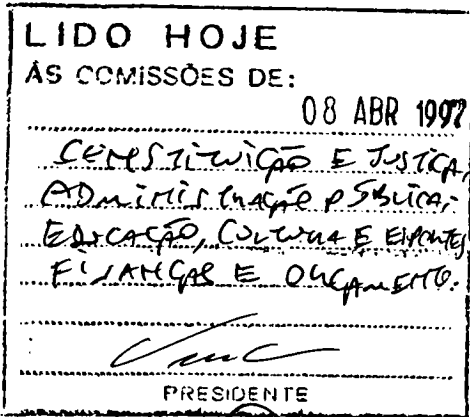 LIDO HOJE
ÀS COMISSÕES DE:
08 ABR 1997
CONSTITUIÇÃO E JUSTIÇA,
ADMINISTRAÇÃO PÚBLICA;
EDUCAÇÃO, CULTURA E ESPORTES
FINANÇAS E ORÇAMENTO.
PRESIDENTE